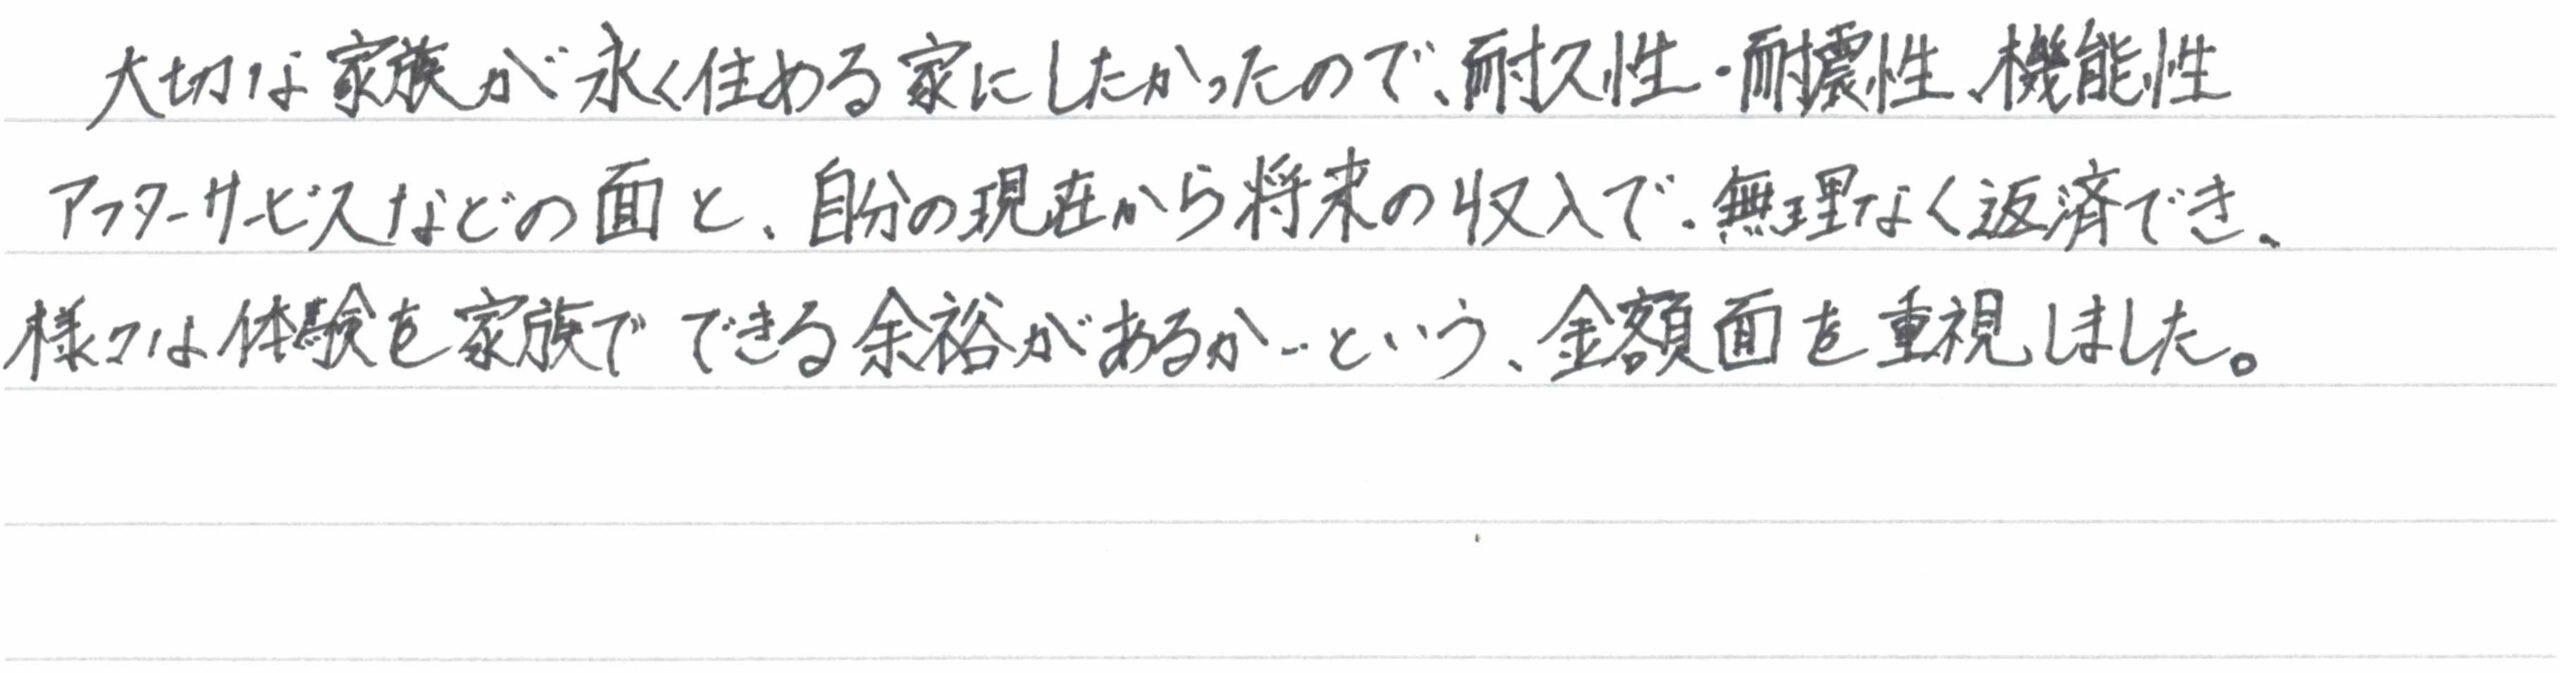 大切な家族が永く住める家にしたかったので、耐久性・耐震性、機能性
アフターサービスなどの面と、自分の現在から将来の収入で、無理なく返済でき、
様々な体験を家族でできる余裕があるか…という、金額面を重視しました。